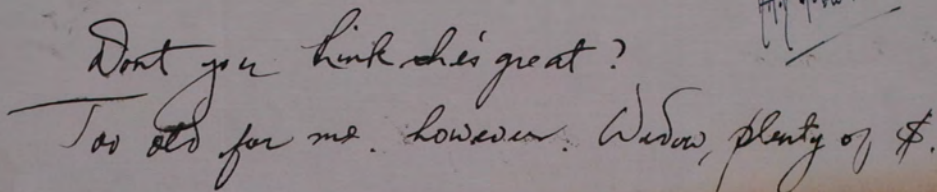 Dont you think she's great?
Too old for me. however. Widow, plenty of $.